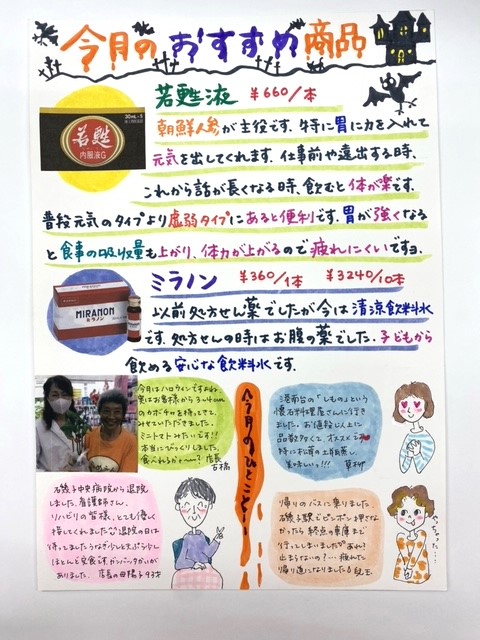 今月のおすすめ商品
若甦液 ¥660/本
30mL×3
若甦
内服液G
朝鮮人参が主役です。特に胃に力を入れて
元気を出してくれます。仕事前や遠出する時、
これから話が長くなる時、飲むと体が楽です。
普段元気のタイプより虚弱タイプにあると便利です。胃が強くなる
と食事の吸収量も上がり、体力が上がるので疲れにくいですヨ。
ミラノン ¥360/1本 ¥3240/10本
MIRANON
ミラノン
以前処方せん薬でしたが今は清涼飲料水
です。処方せんの時はお腹の薬でした。子どもから
飲める安心な飲料水です。
今月のひとこと…
今月はハロウィンですよね。
実はお客様から3〜4cm
のカボチャを持ってきて、
みせていただきました。
ミニトマトみたいです!!
本当にびっくりしました。
食べれるかナ〜? 店長
古橋
港南台の「しもの」という
懐石料理屋さんに行き
ました。お値段以上に
品数多くて、オススメです
特に松茸の土瓶蒸し
美味しいっ!!!
草柳
磯子中央病院から退院
しました。看護師さん、
リハビリの皆様、とても優し
接してくれました。退院の日は
待ってましたうなぎ
ほとんど完食です。
ありました。店長の母 93才
帰りのバスに乗りました。
磯子駅でピンポン押さな
かったら終点の車庫まで
行ってしまいました あれ!
出まらないの?…疲れた
帰り道になりました 児玉
やっちゃった…